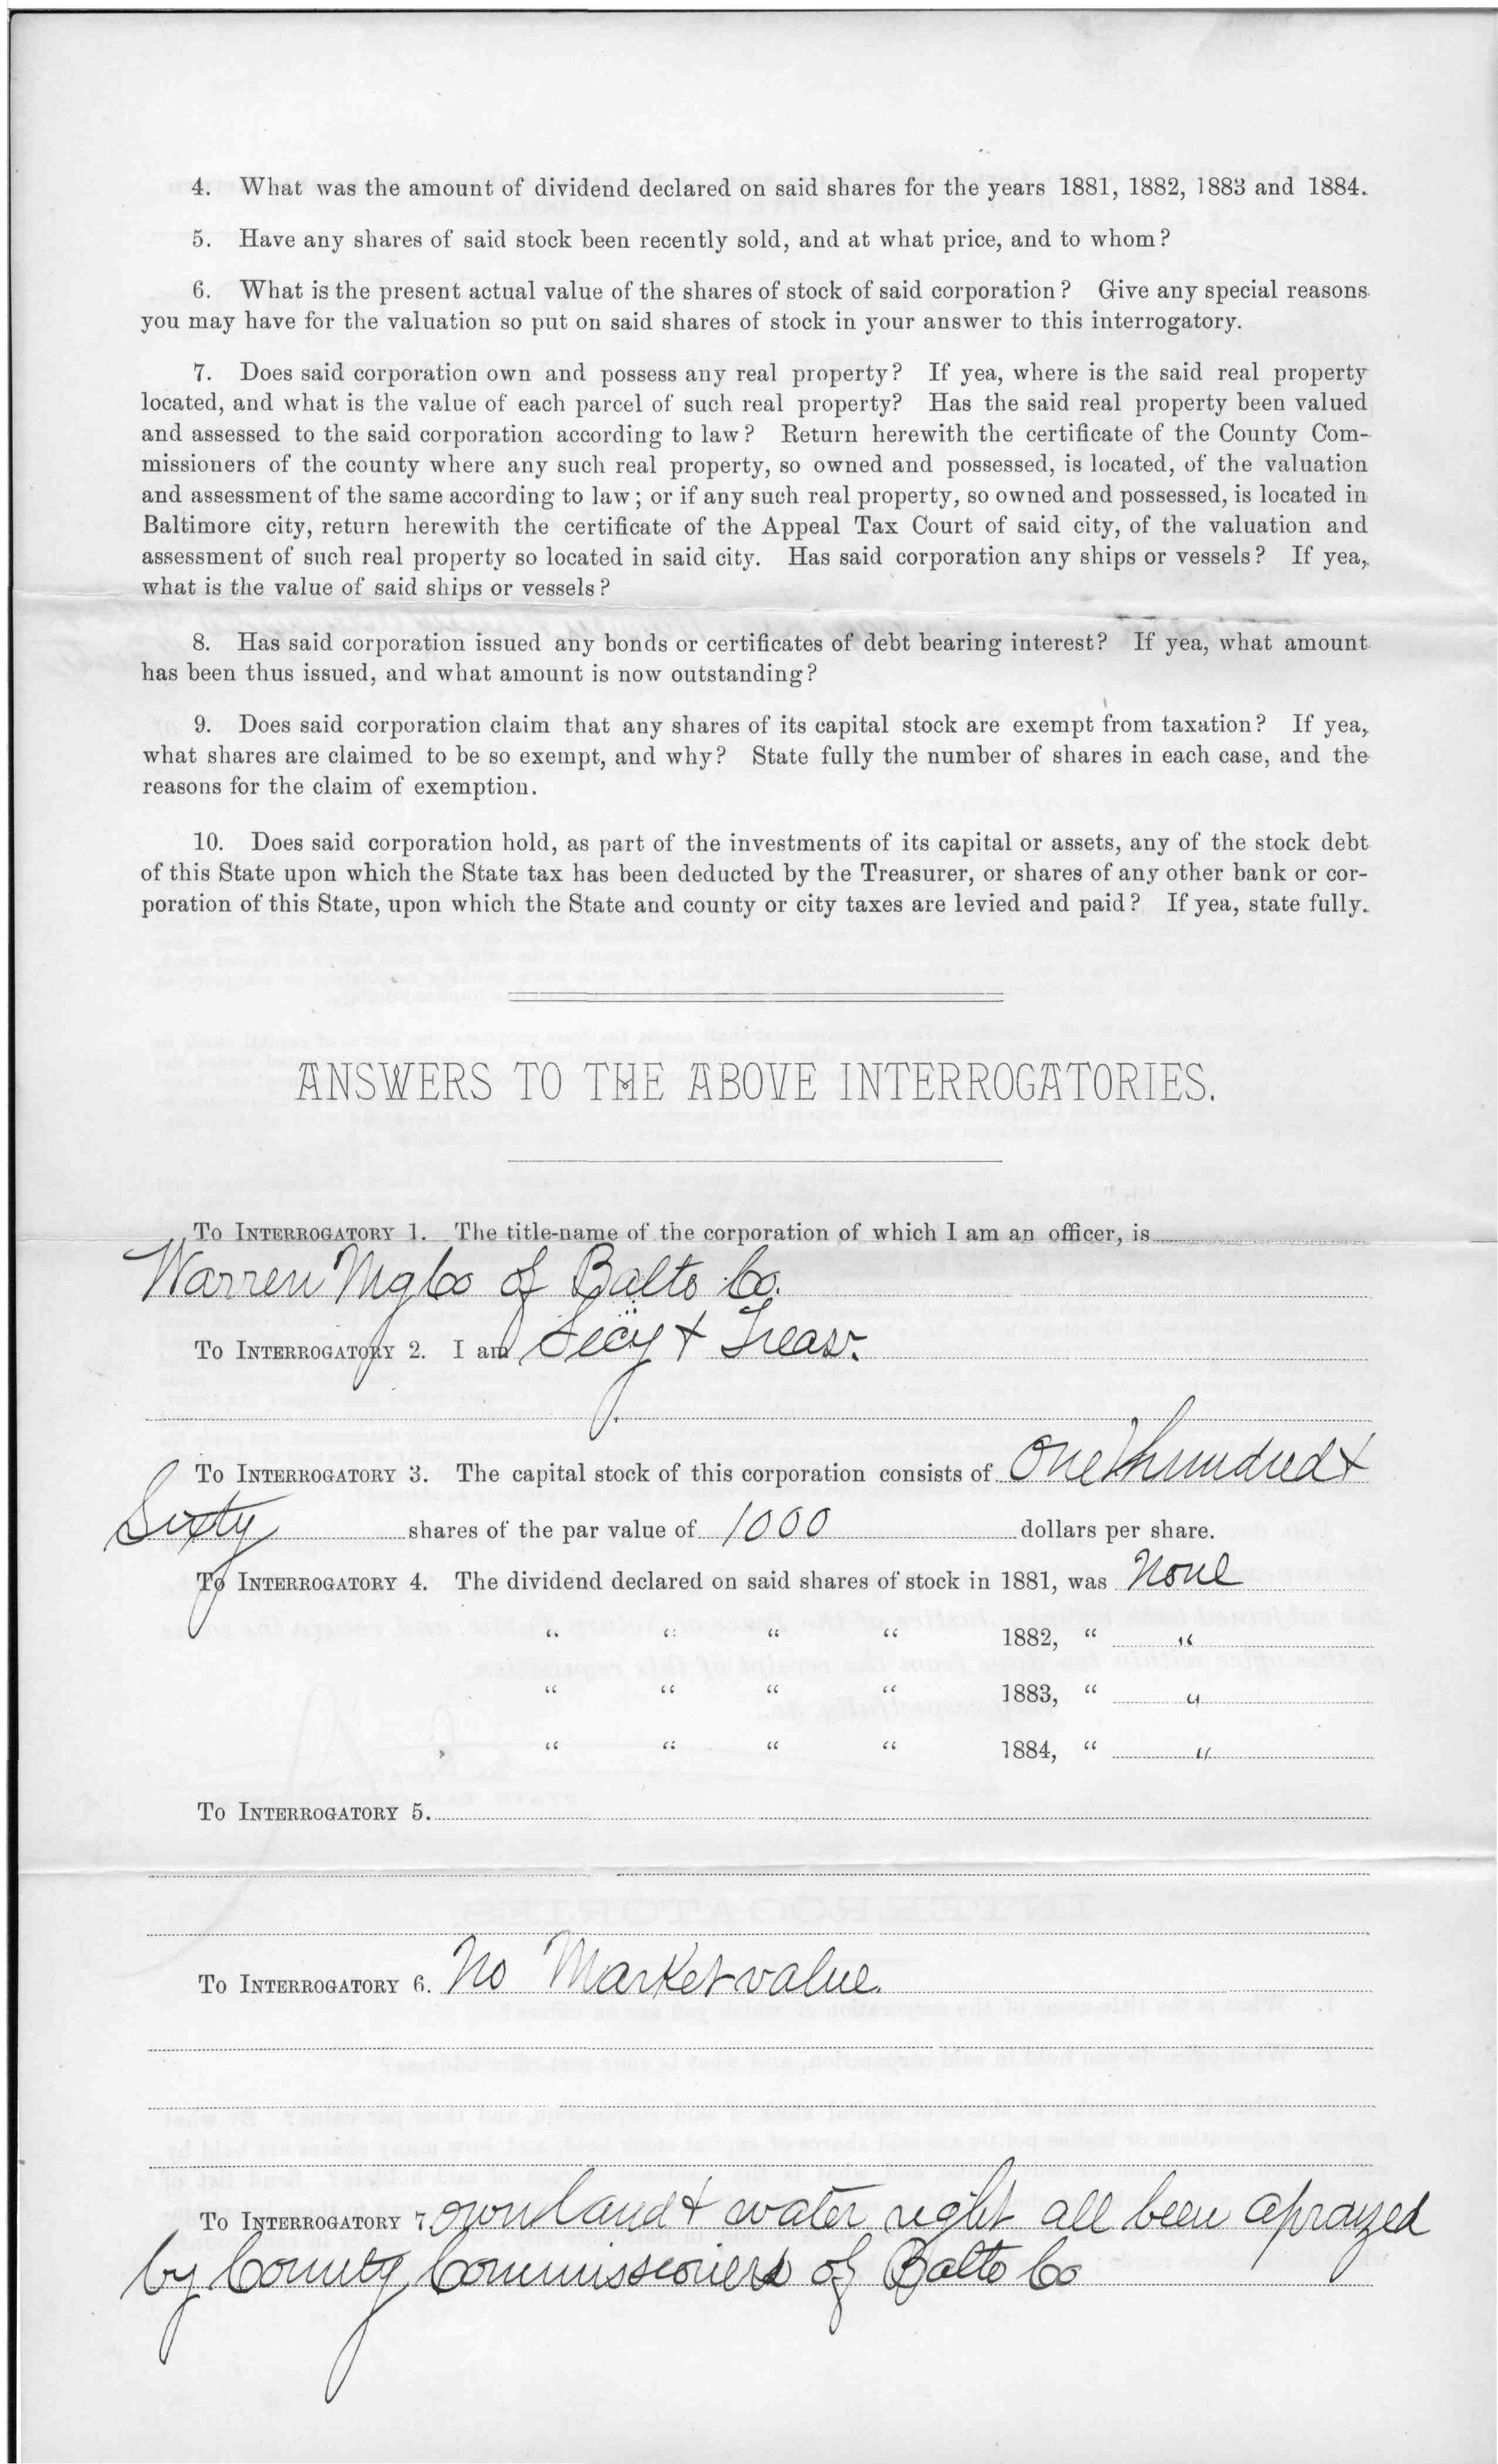 4. What was the amount of dividend declared on said shares for the years 1881, 1882, 1883 and 1884.
5. Have any shares of said stock been recently sold, and at what price, and to whom?
6. What is the present actual value of the shares of stock of said corporation? Give any special reasons
you may have for the valuation so put on said shares of stock in your answer to this interrogatory.
7. Does said corporation own and possess any real property? If yea, where is the said real property
located, and what is the value of each parcel of such real property? Has the said real property been valued
and assessed to the said corporation according to law? Return herewith the certificate of the County Com-
missioners of the county where any such real property, so owned and possessed, is located, of the valuation
and assessment of the same according to law; or if any such real property, so owned and possessed, is located in
Baltimore city, return herewith the certificate of the Appeal Tax Court of said city, of the valuation and
assessment of such real property so located in said city. Has said corporation any ships or vessels? If yea,
what is the value of said ships or vessels?
8. Has said corporation issued any bonds or certificates of debt bearing interest? If yea, what amount
has been thus issued, and what amount is now outstanding?
9. Does said corporation claim that any shares of its capital stock are exempt from taxation? If yea,
what shares are claimed to be so exempt, and why? State fully the number of shares in each case, and the
reasons for the claim of exemption.
10. Does said corporation hold, as part of the investments of its capital or assets, any of the stock debt
of this State upon which the State tax has been deducted by the Treasurer, or shares of any other bank or cor-
poration of this State, upon which the State and county or city taxes are levied and paid? If yea, state fully.
ANSWERS TO THE ABOVE INTERROGATORIES.
To Interrogatory 1. The title-name of the corporation of which I am an officer, is
Warren Mg Co of Balto Co.
To Interrogatory 2. I am Secy + Treasr.
To Interrogatory 3. The capital stock of this corporation consists of One hundred +
Sixty shares of the par value of 1000 dollars per share.
To Interrogatory 4. The dividend declared on said shares of stock in 1881, was None
" " " " 1882, " "
" " " " 1883, " "
" " " " 1884, " "
To Interrogatory 5.
To Interrogatory 6. No Market value.
To Interrogatory 7. own land + water right all been aprayzed
by County Commissioners of Balto Co